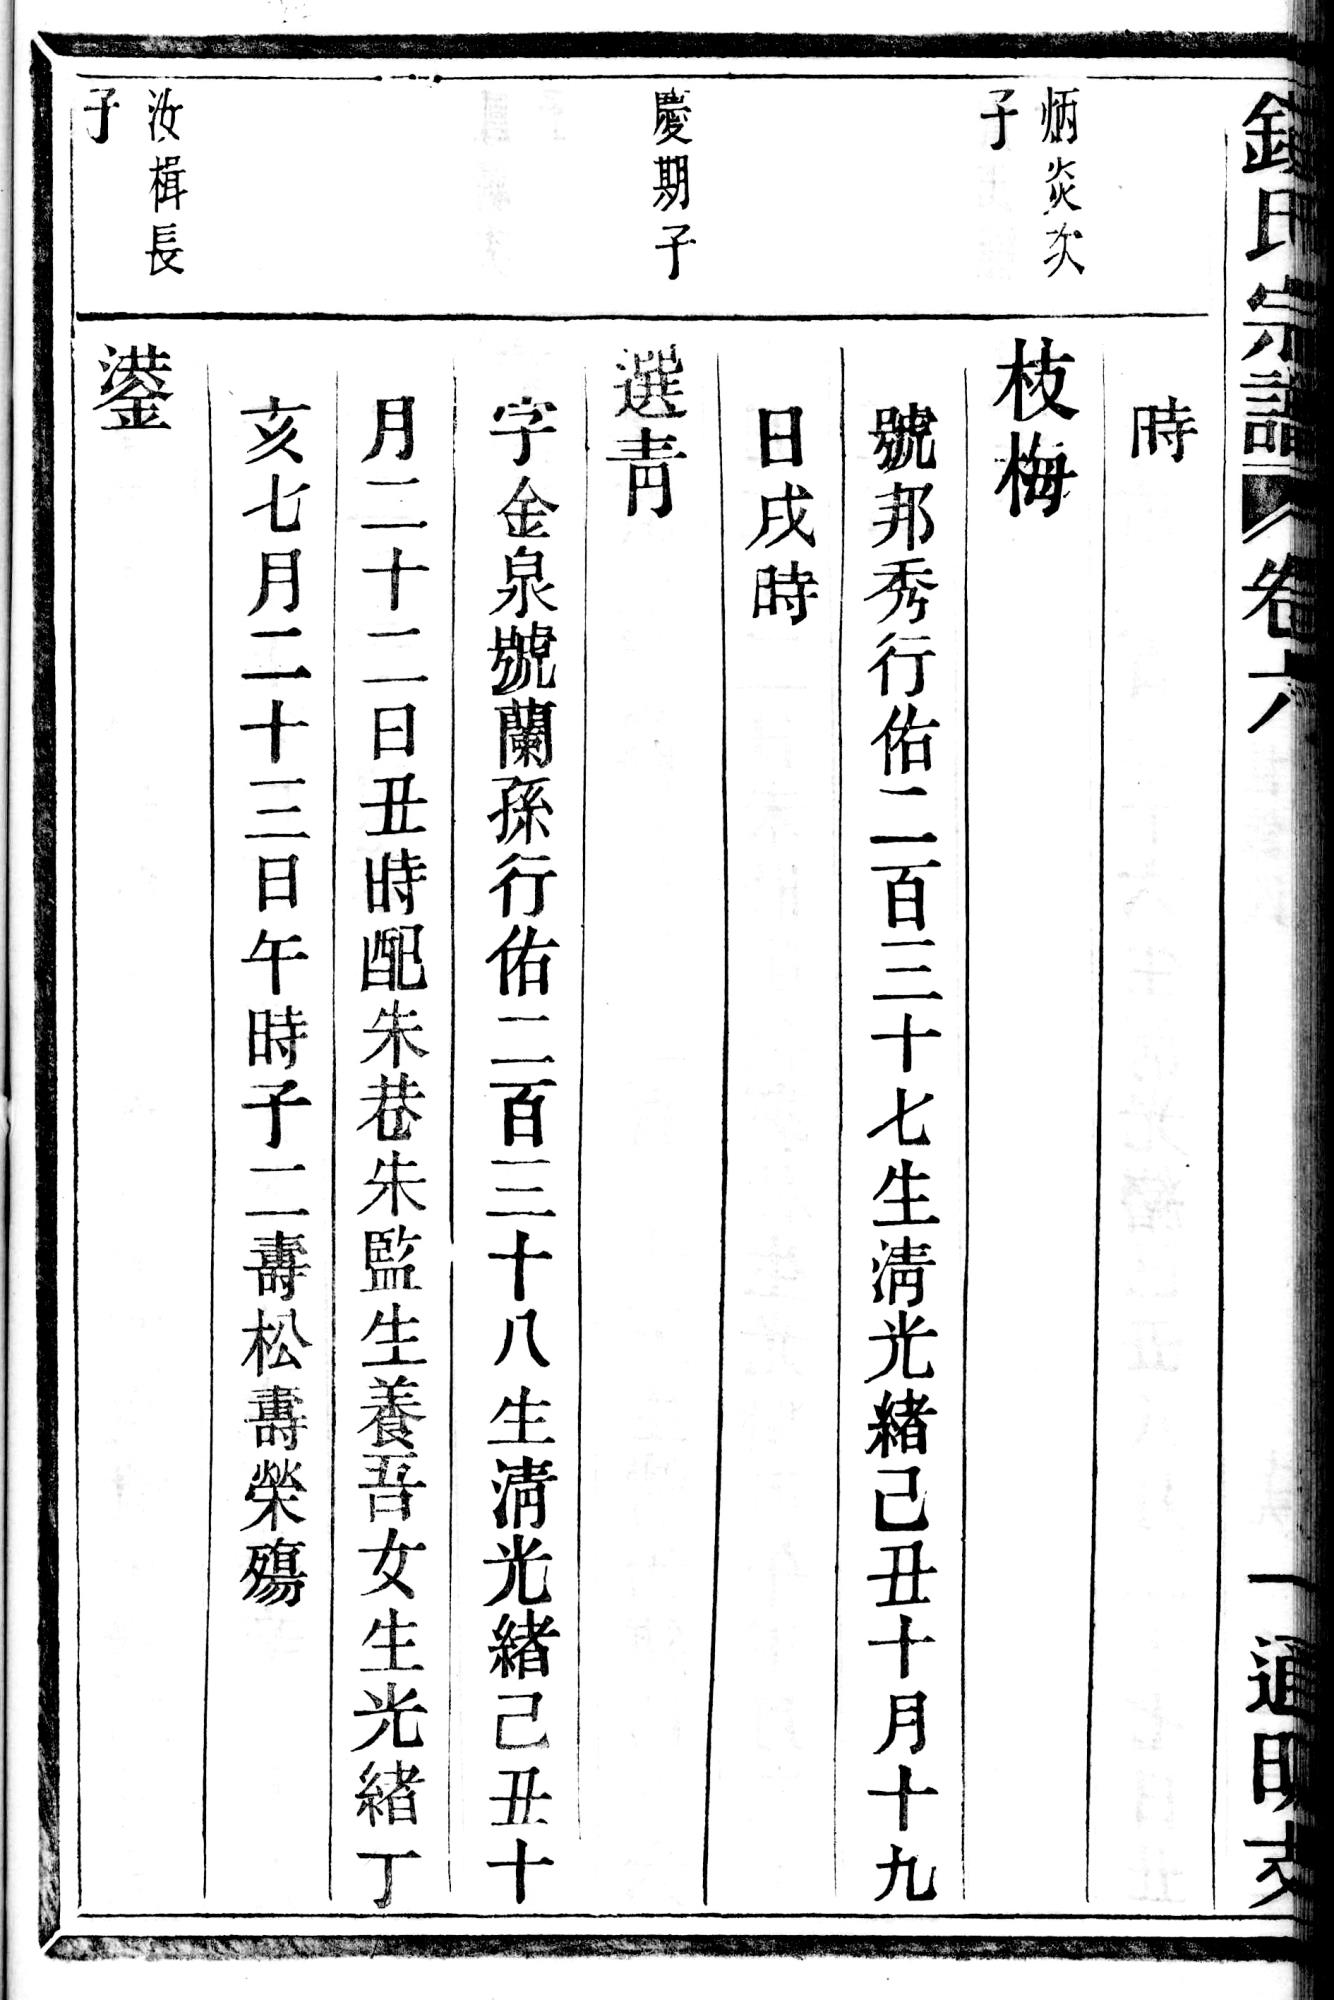 氏宗譜 卷六 一 通明支
時
炳炎次
子
枝梅
號邦秀行佑二百三十七生清光緒己丑十月十九
日戌時
慶期子
選青
字金泉號蘭孫行佑二百三十八生清光緒己丑十
月二十二日丑時配朱巷朱監生養吾女生光緒丁
亥七月二十三日午時子二壽松壽榮殤
汝楫長
子